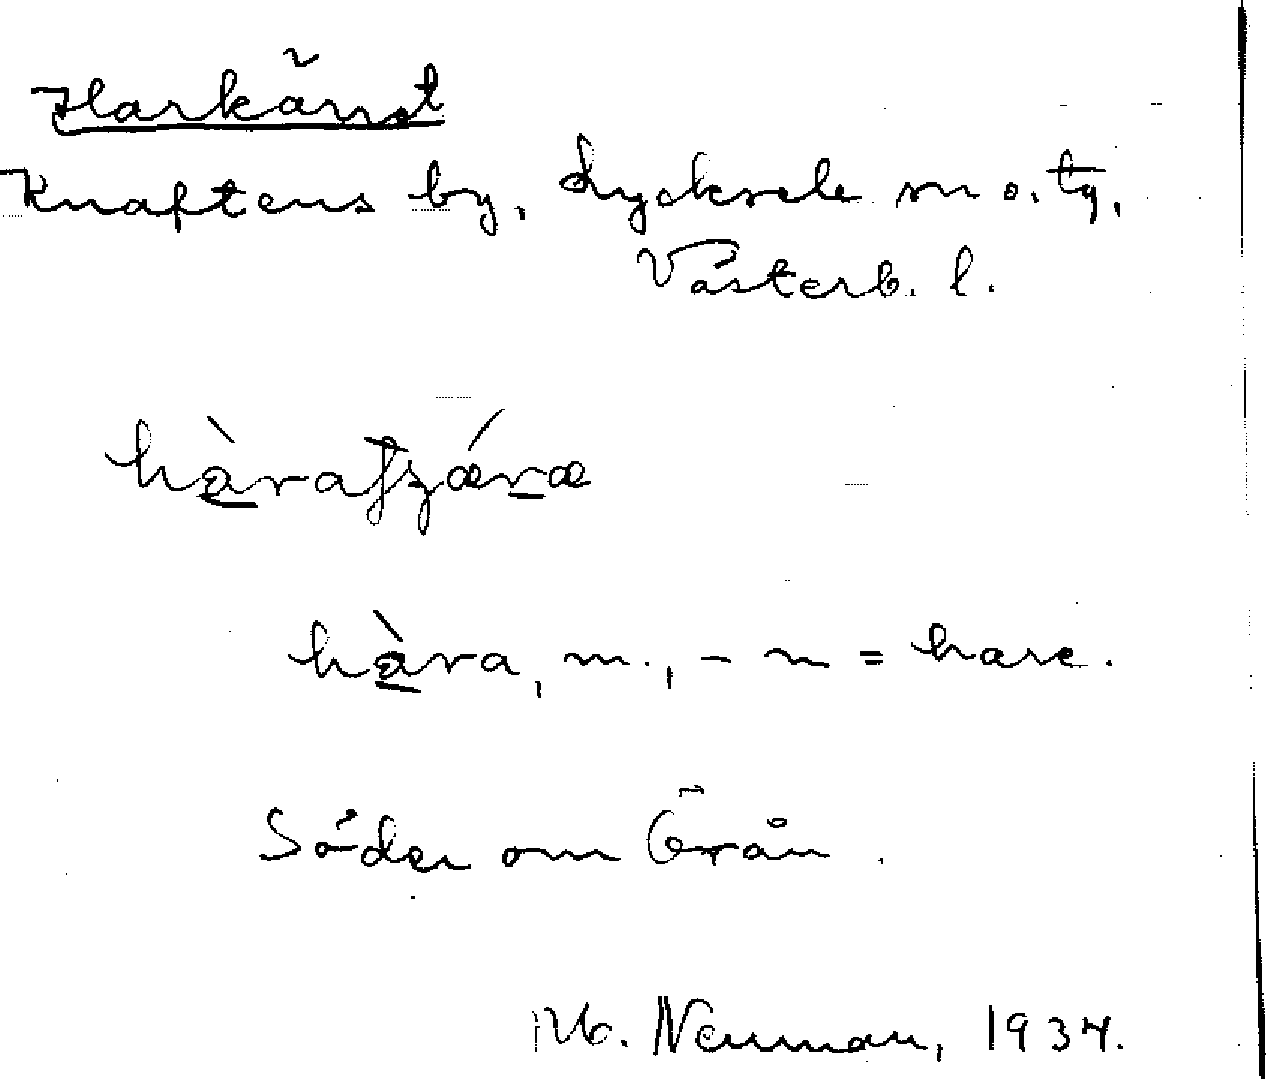 Harkänet
Knaftens by, Lycksele sn o. tg,
Västerb. l.
hàraʃʒǽræ
hàra, m., - n = hare.
Söder om Örån.
M. Neuman, 1934.